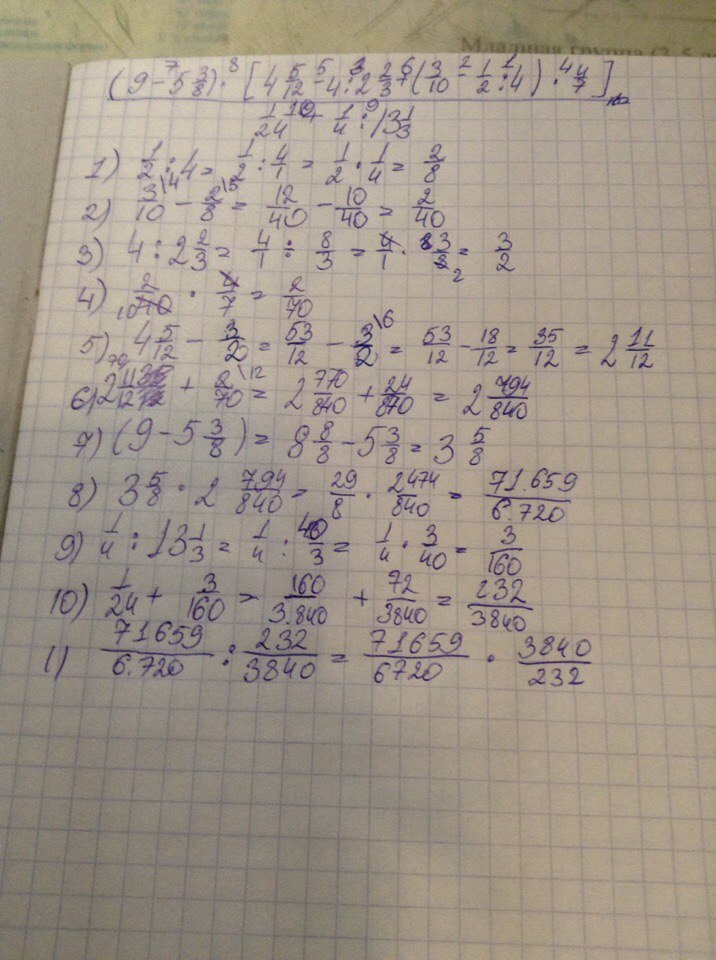 Младшая группа (3-5
(9 - 5 3/8) · [4 5/12 - 4 : 2 2/3 + (3/10 - 1/2 : 4) · 4/7]
1/24 + 1/4 : 13 1/3
1) 1/2 : 4 = 1/2 : 4/1 = 1/2 · 1/4 = 2/8
2) 3/10 \4 - 2/8 \5 = 12/40 - 10/40 = 2/40
3) 4 : 2 2/3 = 4/1 : 8/3 = 4/1 · 3/8 = 3/2
4) 2/40 · 4/7 = 2/70
5) 4 5/12 - 3/2 = 53/12 - 3/2 \6 = 53/12 - 18/12 = 35/12 = 2 11/12
6) 2 11/12 + 2/70 \12 = 2 770/840 + 24/840 = 2 794/840
7) (9 - 5 3/8) = 8 8/8 - 5 3/8 = 3 5/8
8) 3 5/8 · 2 794/840 = 29/8 · 2474/840 = 71.659/6.720
9) 1/4 : 13 1/3 = 1/4 : 40/3 = 1/4 · 3/40 = 3/160
10) 1/24 + 3/160 = 160/3.840 + 72/3840 = 232/3840
11) 71659/6.720 : 232/3840 = 71659/6720 · 3840/232